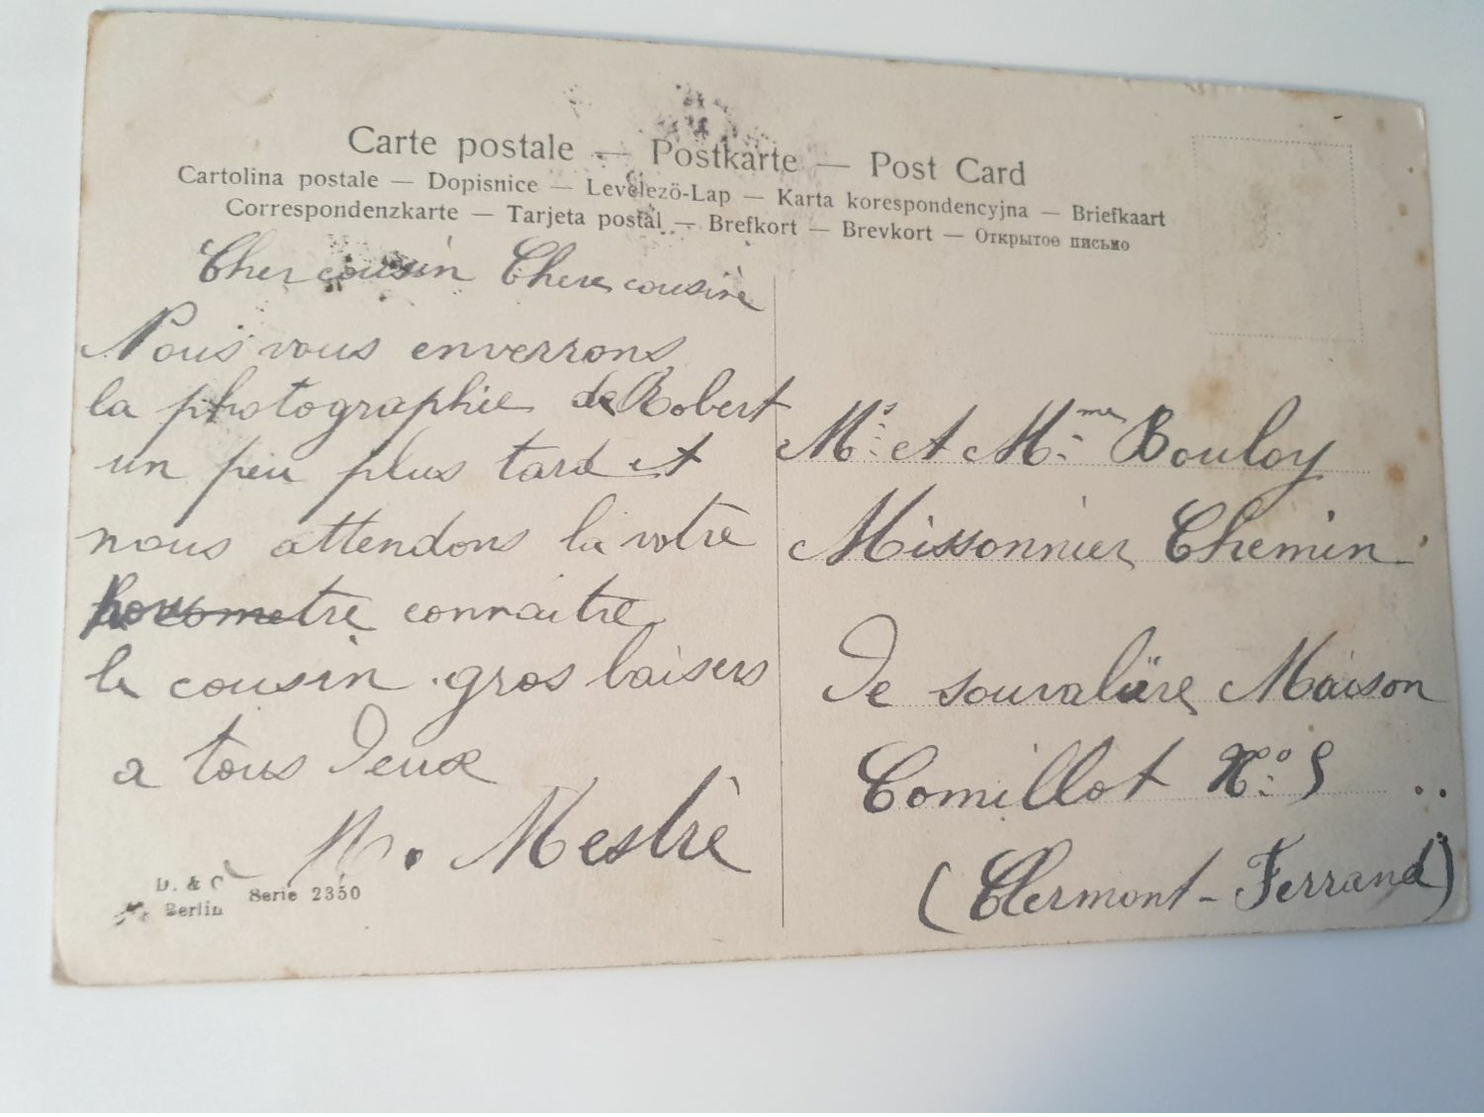 Carte postale — Postkarte — Post Card
Cartolina postale — Dopisnice — Levelezö-Lap — Karta korespondencyjna — Briefkaart
Correspondenzkarte — Tarjeta postal — Brefkort — Brevkort — Открытое письмо
Cher cousin Chere cousine
Nous vous enverrons
la photographie de Robert
un peu plus tard et
nous attendons la votre
connaitre
le cousin . gros baisers
a tous deux
Mestre
D. & C
Berlin
Serie 2350
Mr. et Mme Bouloy
Missonnier Chemin
De Maison
Comillot No.
(Clermont-Ferrand)